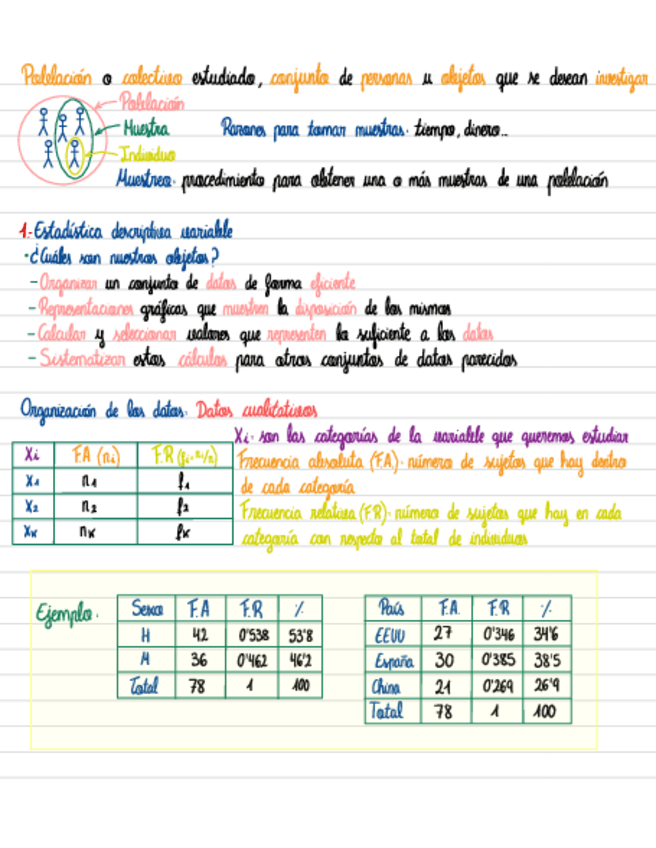 Población o colectivo estudiado, conjunto de personas u objetos que se desean investigar
Población
Muestra
Individuo
Razones para tomar muestras: tiempo, dinero...
Muestreo: procedimiento para obtener una o más muestras de una población
1.-Estadística descriptiva variable
·¿Cuáles son nuestros objetos?
-Organizar un conjunto de datos de forma eficiente
-Representaciones gráficas que muestren la disposición de los mismos
-Calcular y seleccionar valores que representen lo suficiente a los datos
-Sistematizar estos cálculos para otros conjuntos de datos parecidos
Organización de los datos: Datos cualitativos
Xi: son las categorías de la variable que queremos estudiar
Frecuencia absoluta (F.A): número de sujetos que hay dentro
de cada categoría
Frecuencia relativa (F.R): número de sujetos que hay en cada
categoría con respecto al total de individuos
Xi F.A (ni) F.R
X1 n1 f1
X2 n2 f2
XK nK fK
Ejemplo:
Sexo F.A F.R %
H 42 0'538 53'8
M 36 0'462 46'2
Total 78 1 100
País F.A. F.R %
EEUU 27 0'346 34'6
España 30 0'385 38'5
China 21 0'269 26'9
Total 78 1 100